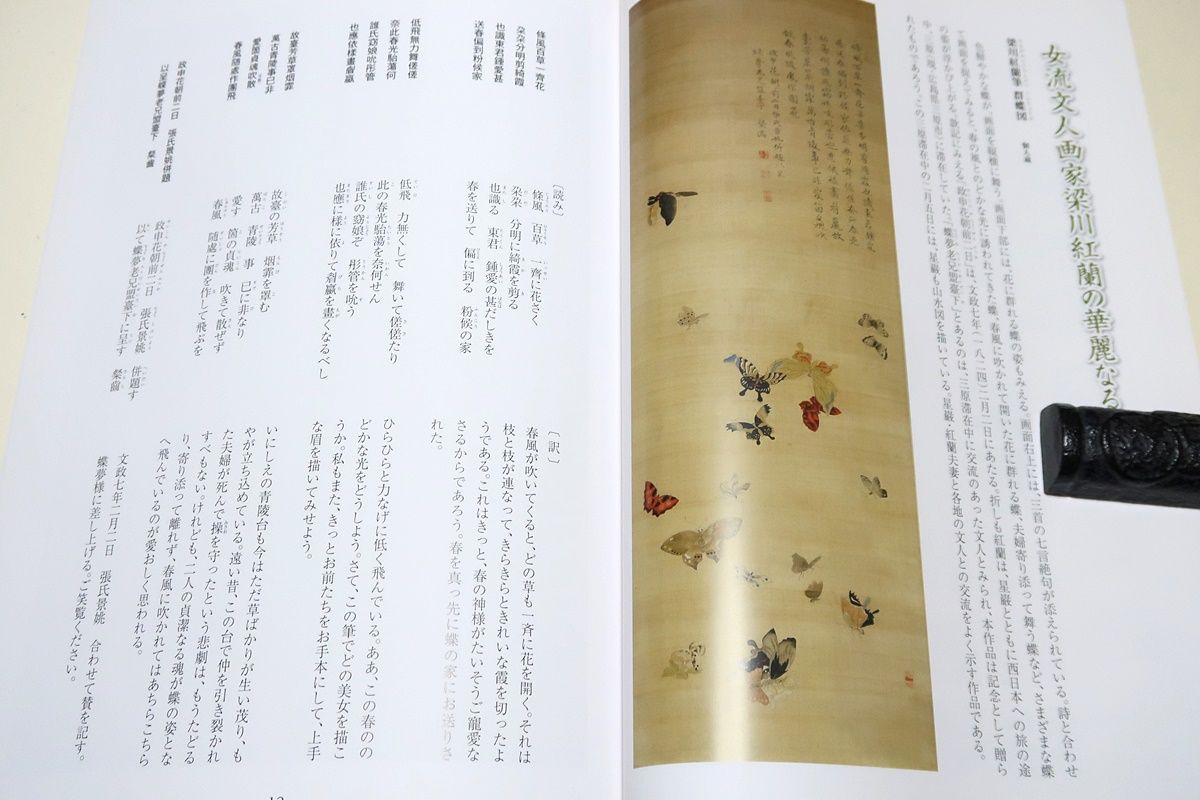 女流文人画家梁川紅蘭の華麗なる
梁川紅蘭筆 群蝶図 個人蔵
色鮮やかな蝶が、画面を縦横に舞う。画面下部には、花に群れる蝶の姿もみえる。画面右上には、三首の七言絶句が添えられている。詩と合わせ
て画面を見てみると、春の風とのどかな光に誘われてきた蝶、春風に吹かれて開いた花に群れる蝶、夫婦寄り添って舞う蝶など、さまざまな蝶
の姿が浮かび上がる。款記にみえる「政申花朝前二日」は、文政七年(一八二四)二月二日にあたる。折しも紅蘭は、星巌とともに西日本への旅の途
中、三原(現、広島県三原市)に滞在していた。「蝶夢老兄盟臺下」とあるのは、三原滞在中に交流のあった文人とみられ、本作品は記念として贈ら
れたものであろう。この三原滞在中の二月五日には、星巌も山水図を描いている。星巌・紅蘭夫妻と各地の文人との交流をよく示す作品である。
條風百草一齊花
朶朶分明剪綺霞
也識東君鍾愛甚
送春偏到粉候家
低飛無力舞傞傞
奈此春光駘蕩何
誰氏窈娘吮彤管
也應依樣畫
故臺芳草罩烟霏
萬古青陵事已非
愛箇貞魂吹不散
春風隨處作團飛
政申花朝前二日 張氏景姚併題
以呈蝶夢老兄盟臺下 粲齒
〔読み〕
條風 百草 一齊に花さく
朶朶 分明に綺霞を剪る
也識る 東君 鍾愛の甚だしきを
春を送りて 偏に到る 粉候の家
低飛 力無くして 舞いて傞傞たり
此の春光駘蕩を奈何せん
誰氏の窈娘ぞ 彤管を吮う
也應に様に依りて を畫くなるべし
故臺の芳草 烟霏を罩む
萬古 青陵 事 已に非なり
愛す 箇の貞魂 吹きて散ぜず
春風 隨處に團を作して飛ぶを
政申花朝前二日 張氏景姚 併題す
以て蝶夢老兄盟臺下に呈す 粲齒
〔訳〕
春風が吹いてくると、どの草も一斉に花を開く。それは
枝と枝が連なって、きらきらときれいな霞を切ったよ
うである。これはきっと、春の神様がたいそうご寵愛な
さるからであろう。春を真っ先に蝶の家にお送りさ
れた。
ひらひらと力なげに低く飛んでいる。ああ、この春のの
どかな光をどうしよう。さて、この筆でどの美女を描こ
うか。私もまた、きっとお前たちをお手本にして、上手
な眉を描いてみせよう。
いにしえの青陵台も今はただ草ばかりが生い茂り、も
やが立ち込めている。遠い昔、この台で仲を引き裂かれ
た夫婦が死んで操を守ったという悲劇は、もうたどる
すべもない。けれども、二人の貞潔なる魂が蝶の姿とな
り寄り添って離れず、春風に吹かれてはあちらこちら
へ飛んでいるのが愛おしく思われる。
文政七年二月二日 張氏景姚 合わせて賛を記す。
蝶夢様に差し上げる。ご笑覧ください。